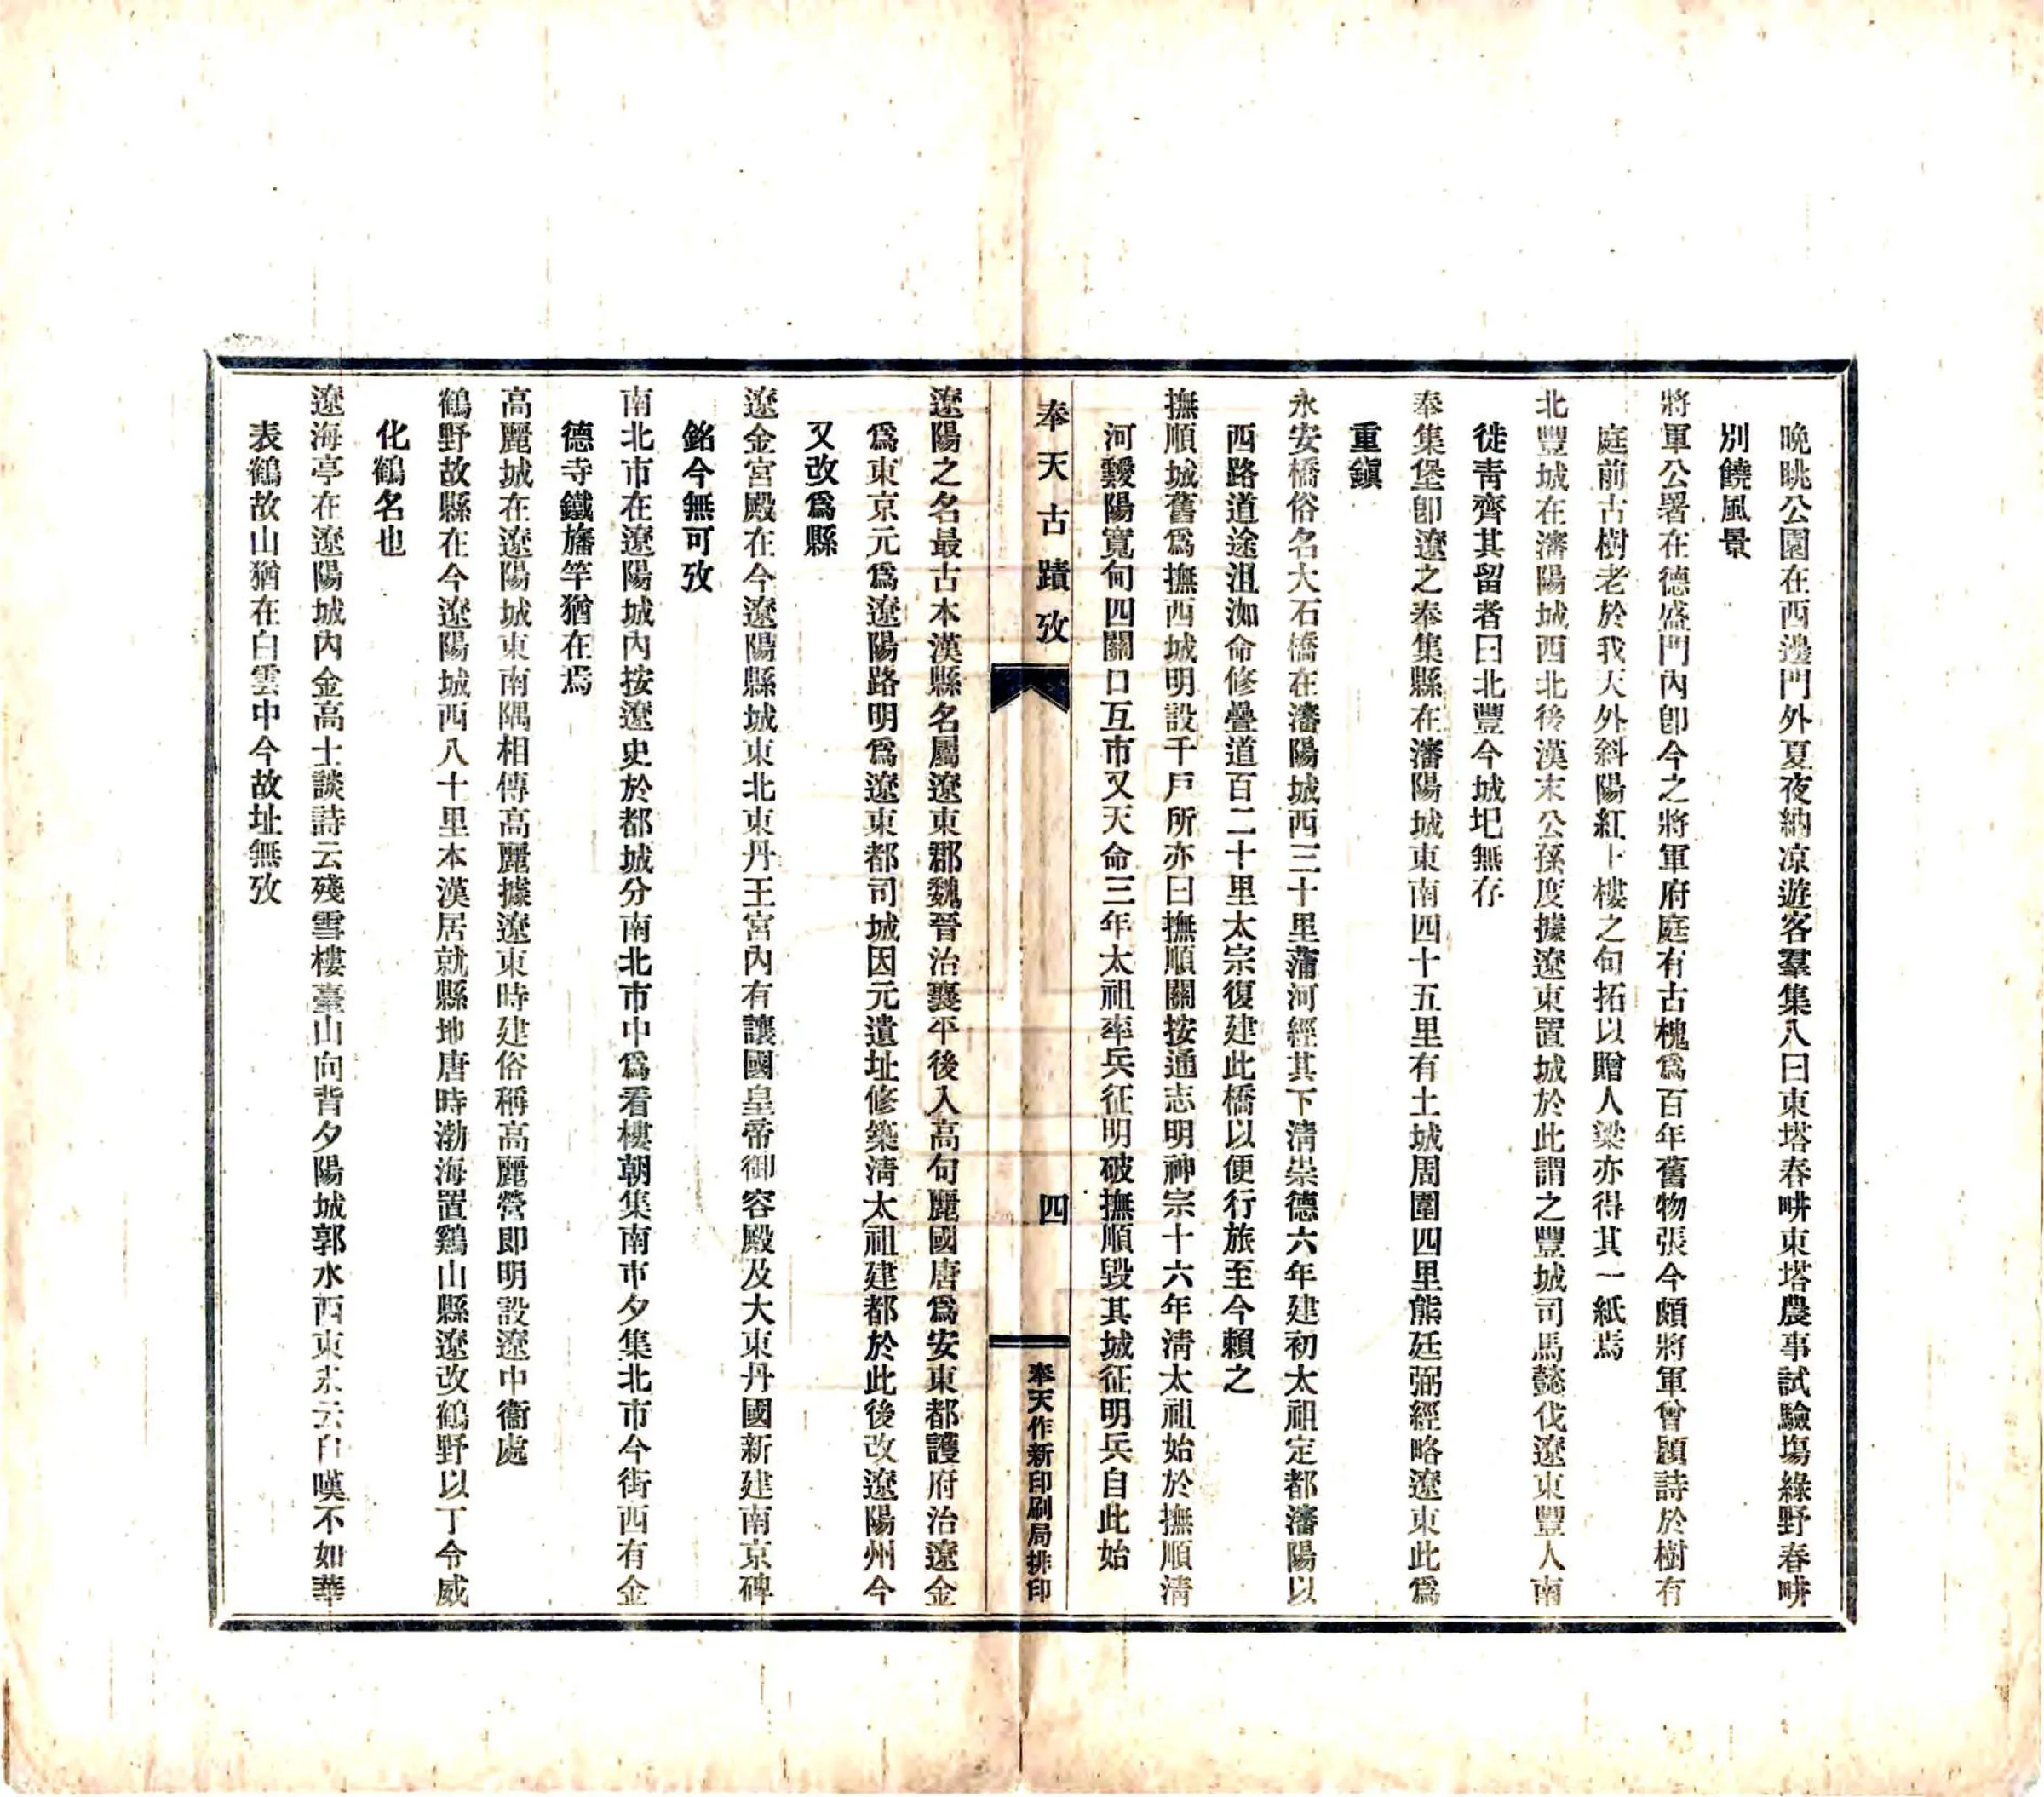 晚眺公園在西邊門外夏夜納凉遊客羣集八曰東塔春畊東塔農事試驗塲綠野春畊
別饒風景
將軍公署在德盛門內卽今之將軍府庭有古槐爲百年舊物張今頗將軍曾題詩於樹有
庭前古樹老於我天外斜陽紅上樓之句拓以贈人梁亦得其一紙焉
北豐城在瀋陽城西北後漢末公孫度據遼東置城於此謂之豐城司馬懿伐遼東豐人南
徙靑齊其留者曰北豐今城圯無存
奉集堡卽遼之奉集縣在瀋陽城東南四十五里有土城周圍四里熊廷弼經略遼東此爲
重鎭
永安橋俗名大石橋在瀋陽城西三十里蒲河經其下淸崇德六年建初太祖定都瀋陽以
西路道途沮洳命修疊道百二十里太宗復建此橋以便行旅至今賴之
撫順城舊爲撫西城明設千戶所亦曰撫順關按通志明神宗十六年淸太祖始於撫順淸
河靉陽寬甸四關口互市又天命三年太祖率兵征明破撫順毀其城征明兵自此始
奉天古蹟攷
四
奉天作新印刷局排印
遼陽之名最古本漢縣名屬遼東郡魏晉治襄平後入高句麗國唐爲安東都護府治遼金
爲東京元爲遼陽路明爲遼東都司城因元遺址修築淸太祖建都於此後改遼陽州今
又改爲縣
遼金宮殿在今遼陽縣城東北東丹王宮內有讓國皇帝御容殿及大東丹國新建南京碑
銘今無可攷
南北市在遼陽城內按遼史於都城分南北市中爲看樓朝集南市夕集北市今街西有金
德寺鐵旛竿猶在焉
高麗城在遼陽城東南隅相傳高麗據遼東時建俗稱高麗營即明設遼中衞處
鶴野故縣在今遼陽城西八十里本漢居就縣地唐時渤海置鷄山縣遼改鶴野以丁令威
化鶴名也
遼海亭在遼陽城內金高士談詩云殘雪樓臺山向背夕陽城郭水西東末云自嘆不如華
表鶴故山猶在白雲中今故址無攷